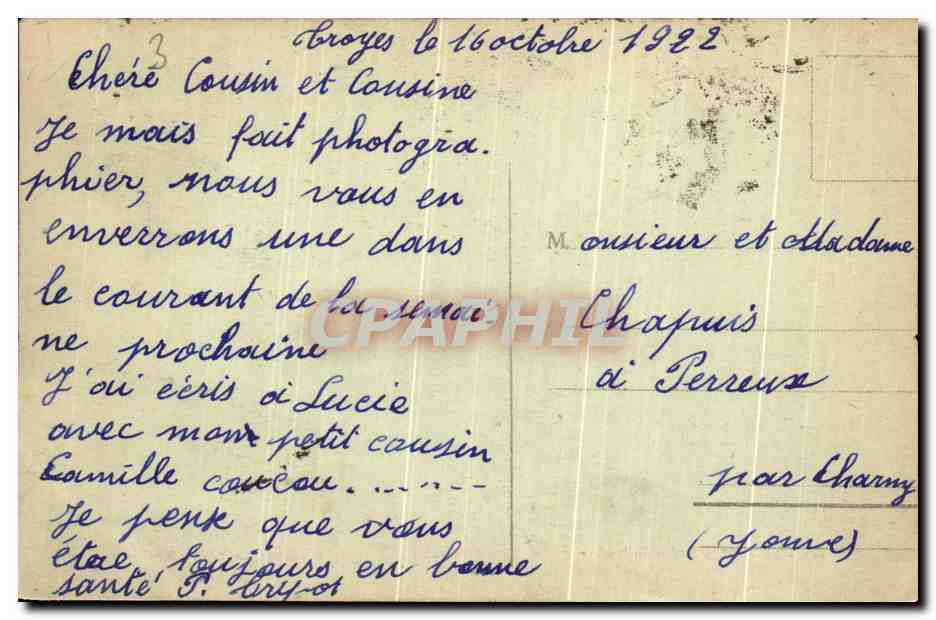 3
Troyes le 16 octobre 1922
Chére Cousin et Cousine
Je mais fait photogra.
phier, nous vous en
enverrons une dans
le courant de la semai-
ne prochaine
J'ai écris à Lucie
avec mon petit cousin
Camille coucou.......
Je pense que vous
étae toujours en bonne
santé P.
M. onsieur et Madame
Chapuis
à Perreux
par Charny
(Yonne)
CPAPHIL